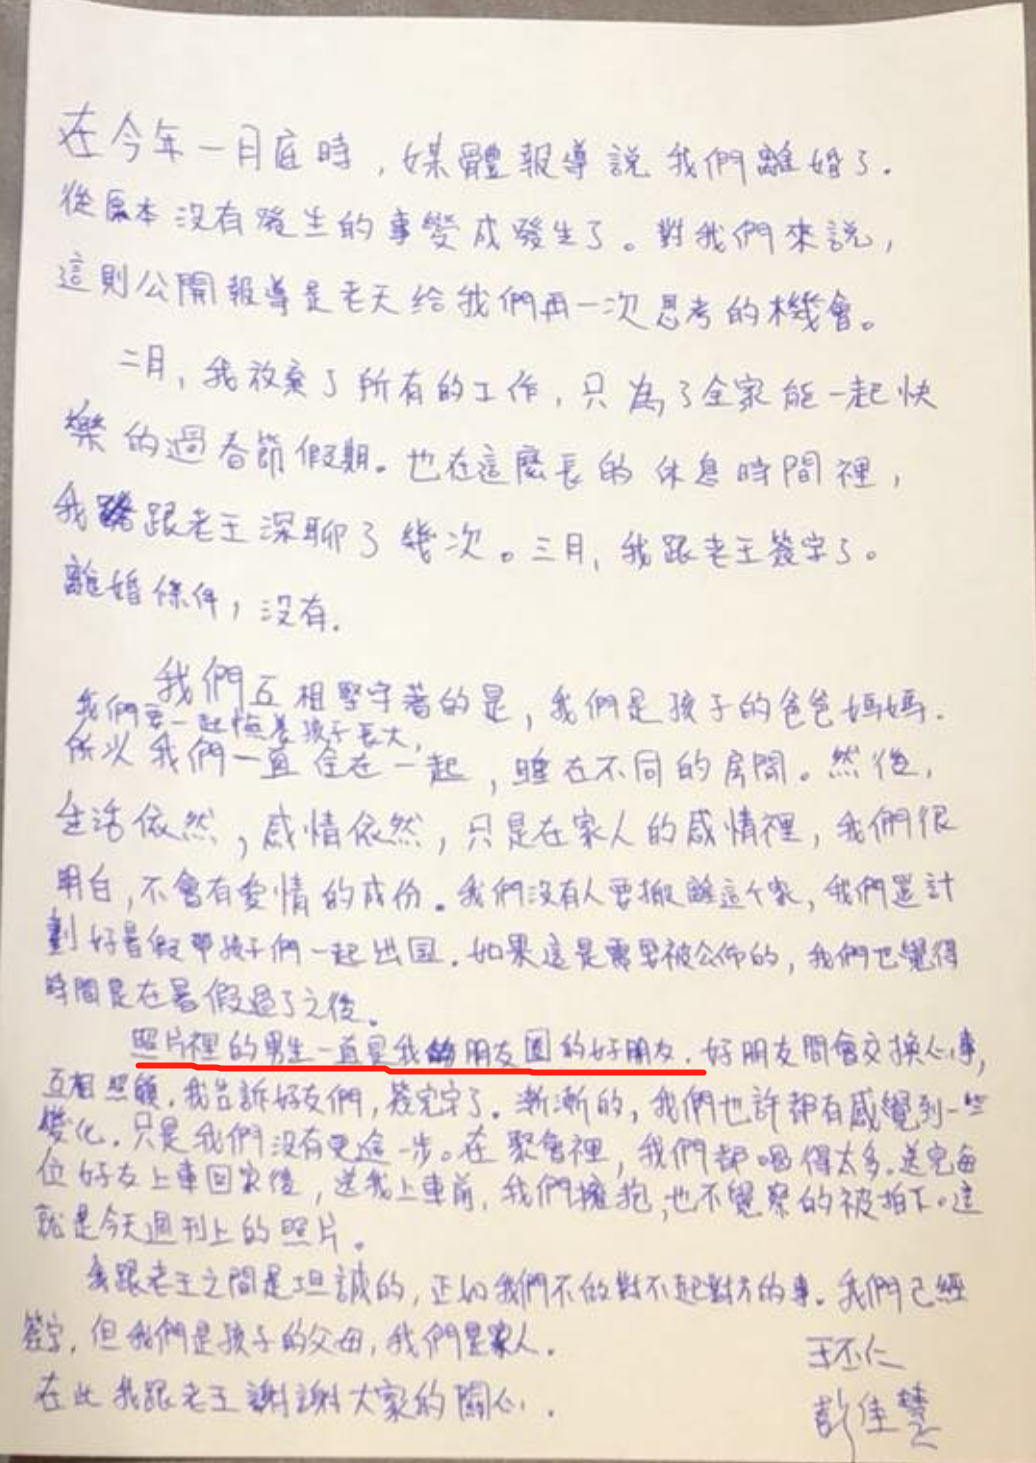 在今年一月底時，媒體報導說我們離婚了．
從原本沒有發生的事變成發生了。對我們來說，
這則公開報導是老天給我們再一次思考的機會。
二月，我放棄了所有的工作，只為了全家能一起快
樂的過春節假期。也在這麼長的休息時間裡，
我跟老王深聊了幾次。三月，我跟老王簽字了。
離婚條件，沒有．
我們互相堅守著的是，我們是孩子的爸爸媽媽．
我們要一起撫養孩子長大，
所以我們一直住在一起，睡在不同的房間。然後，
生活依然，感情依然，只是在家人的感情裡，我們很
明白，不會有愛情的成份．我們沒有人要搬離這个家，我們還計
劃好暑假帶孩子們一起出国．如果這是需要被公佈的，我們也覺得
時間是在暑假過了之後。
照片裡的男生一直是我朋友圈的好朋友．好朋友間會交換心事，
互相照顧．我告訴好友們，簽完字了．漸漸的，我們也許都有感覺到一些
變化．只是我們沒有更進一步。在聚會裡，我們都喝得太多．送完每
位好友上車回家後，送我上車前，我們擁抱，也不覺察的被拍下。這
就是今天週刊上的照片。
我跟老王之間是坦誠的，正如我們不做對不起對方的事．我們已經
簽字，但我們是孩子的父母，我們是家人．
王丕仁
在此我跟老王謝謝大家的關心．
彭佳慧